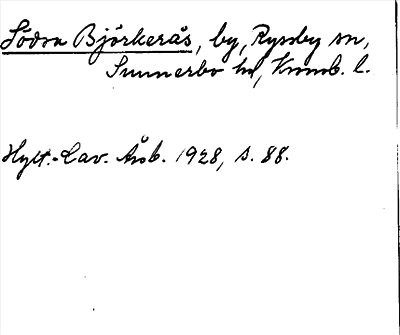 Södra Björkerås, by, Ryssby sn,
Sunnerbo hd, Kronob. l.
Hylt.-Cav. Årsb. 1928, s. 88.